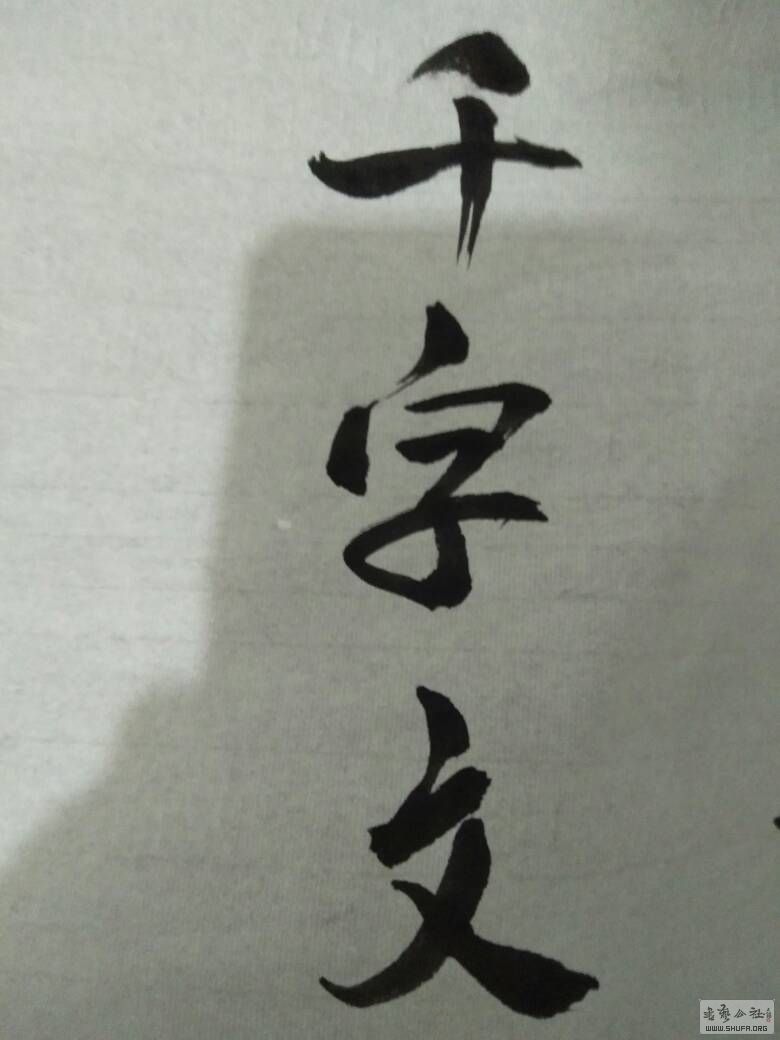 千字文
书艺公社
WWW.SHUFA.ORG